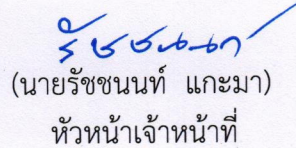 รัชชนนท์
(นายรัชชนนท์ แกะมา)
หัวหน้าเจ้าหน้าที่